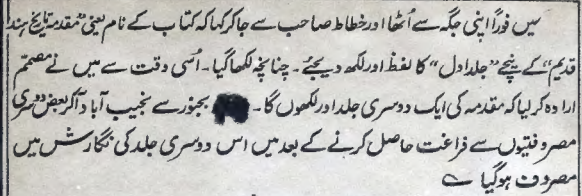 میں فوراً اپنی جگہ سے اُٹھا اور خطاط صاحب سے جا کر کہا کہ کتاب کے نام یعنی "مقدمہ تاریخ ہند
قدیم" کے نیچے "جلد اول" کا لفظ اور لکھ دیجئے۔ چنانچہ لکھا گیا۔ اُسی وقت سے میں نے مصمم
ارادہ کر لیا کہ مقدمہ کی ایک دوسری جلد اور لکھوں گا۔ بجنور سے نجیب آباد آکر بعض دوسری
مصروفیتوں سے فراغت حاصل کرنے کے بعد میں اس دوسری جلد کی نگارش میں
مصروف ہو گیا